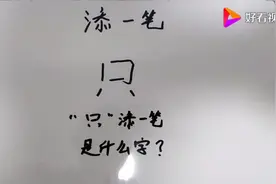 添一笔
好看视
只
"只"添一笔
是什么字？